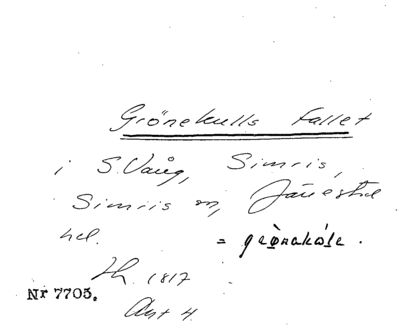 Grönekulls fallet
i S. Vång, Simris,
Simris sn, Järrestad
hd. = grønakåle.
Lh. 1817
Nr 7705.
Akt 4.